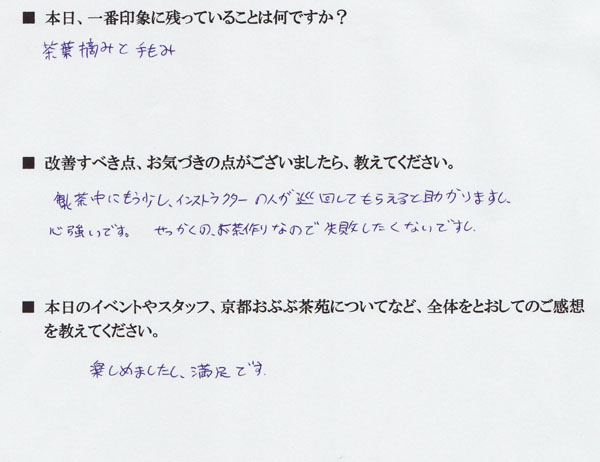 ■ 本日、一番印象に残っていることは何ですか？
茶葉摘みと手もみ
■ 改善すべき点、お気づきの点がございましたら、教えてください。
製茶中にもう少し、インストラクターの人が巡回してもらえると助かりますし、
心強いです。 せっかくの、お茶作りなので失敗したくないですし。
■ 本日のイベントやスタッフ、京都おぶぶ茶苑についてなど、全体をとおしてのご感想
を教えてください。
楽しめましたし、満足です。